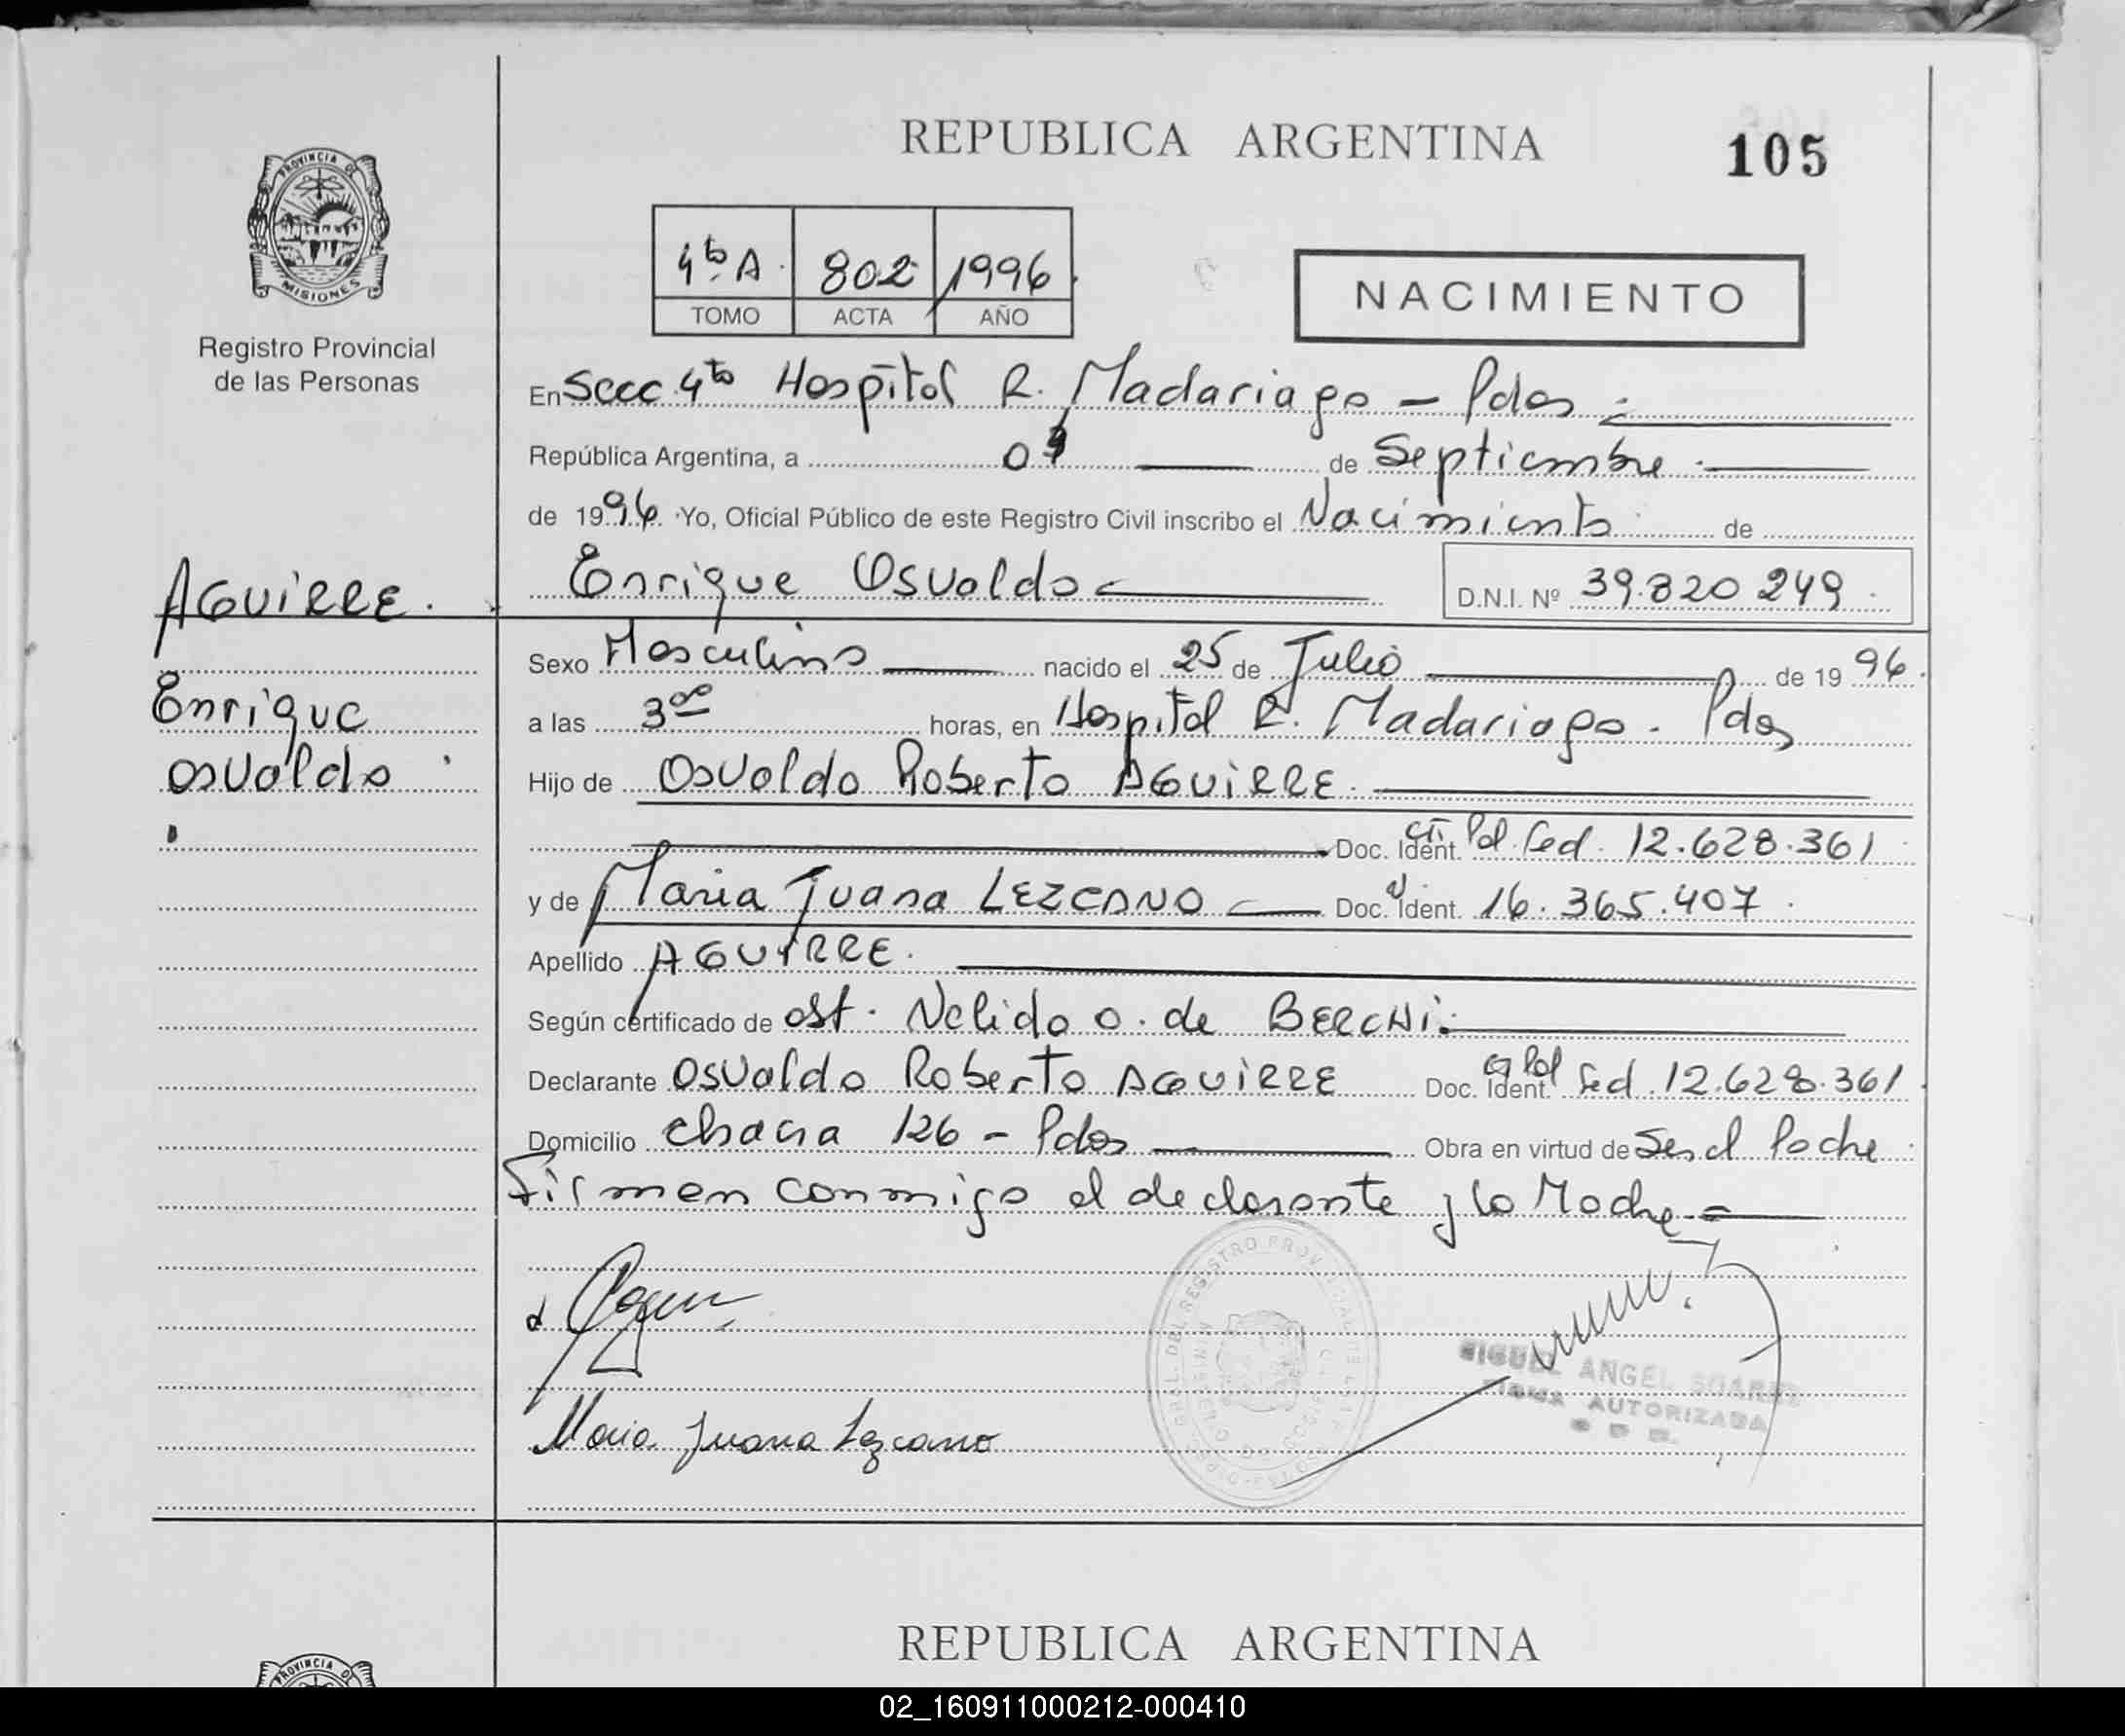 REPUBLICA ARGENTINA
105
PROVINCIA DE
MISIONES
Registro Provincial
de las Personas
4to A. 802 1996
TOMO ACTA AÑO
NACIMIENTO
En Secc 4to Hospital R. Madariaga - Pdas
República Argentina, a 09 de Septiembre
de 1996 Yo, Oficial Público de este Registro Civil inscribo el Nacimiento de
Enrique Osvaldo D.N.I. Nº 39.820 249
AGUIRRE.
Enrique
Osvaldo
Sexo Masculino nacido el 25 de Julio de 1996.
a las 3 00 horas, en Hospital R. Madariaga. Pdas
Hijo de Osvaldo Roberto AGUIRRE.
Doc. Ident. CI Pol Fed. 12.628.361
y de Maria Juana LEZCANO Doc. Ident. 16.365.407
Apellido AGUIRRE.
Según certificado de Ost. Nelida O. de BERCHI
Declarante Osvaldo Roberto AGUIRRE Doc. Ident. CI Pol Fed. 12.628.361
Domicilio Chacra 126 - Pdas Obra en virtud de Ser el Padre
Firman conmigo el declarante y la Madre
Maria Juana Lezcano
MIGUEL ANGEL SUAREZ
FIRMA AUTORIZADA
REPUBLICA ARGENTINA
PROVINCIA DE
02_160911000212-000410